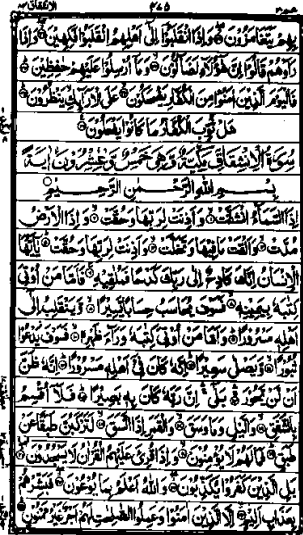 الانشقاق ٨٤ ٤٧٥ عم ٣٠
بِهِمْ يَتَغَامَزُوْنَ وَاِذَا انْقَلَبُوْۤا اِلٰۤى اَهْلِهِمُ انْقَلَبُوْا فَكِهِيْنَ وَاِذَا
رَاَوْهُمْ قَالُوْۤا اِنَّ هٰۤؤُلَآءِ لَضَآلُّوْنَ وَمَاۤ اُرْسِلُوْا عَلَيْهِمْ حٰفِظِيْنَ
فَالْيَوْمَ الَّذِيْنَ اٰمَنُوْا مِنَ الْكُفَّارِ يَضْحَكُوْنَ عَلَى الْاَرَآئِكِ يَنْظُرُوْنَ
هَلْ ثُوِّبَ الْكُفَّارُ مَا كَانُوْا يَفْعَلُوْنَ
سُوْرَةُ الْاِنْشِقَاقِ مَكِّيَّةٌ وَّهِيَ خَمْسٌ وَّعِشْرُوْنَ اٰيَةً
بِسْمِ اللهِ الرَّحْمٰنِ الرَّحِيْمِ
اِذَا السَّمَآءُ انْشَقَّتْ وَاَذِنَتْ لِرَبِّهَا وَحُقَّتْ وَاِذَا الْاَرْضُ
مُدَّتْ وَاَلْقَتْ مَا فِيْهَا وَتَخَلَّتْ وَاَذِنَتْ لِرَبِّهَا وَحُقَّتْ يٰۤاَيُّهَا
الْاِنْسَانُ اِنَّكَ كَادِحٌ اِلٰى رَبِّكَ كَدْحًا فَمُلٰقِيْهِ فَاَمَّا مَنْ اُوْتِيَ
كِتٰبَهٗ بِيَمِيْنِهٖ فَسَوْفَ يُحَاسَبُ حِسَابًا يَّسِيْرًا وَّيَنْقَلِبُ اِلٰۤى
اَهْلِهٖ مَسْرُوْرًا وَاَمَّا مَنْ اُوْتِيَ كِتٰبَهٗ وَرَآءَ ظَهْرِهٖ فَسَوْفَ يَدْعُوْا
ثُبُوْرًا وَّيَصْلٰى سَعِيْرًا اِنَّهٗ كَانَ فِيْۤ اَهْلِهٖ مَسْرُوْرًا اِنَّهٗ ظَنَّ
اَنْ لَّنْ يَّحُوْرَ بَلٰۤى اِنَّ رَبَّهٗ كَانَ بِهٖ بَصِيْرًا فَلَاۤ اُقْسِمُ
بِالشَّفَقِ وَالَّيْلِ وَمَا وَسَقَ وَالْقَمَرِ اِذَا اتَّسَقَ لَتَرْكَبُنَّ طَبَقًا عَنْ
طَبَقٍ فَمَا لَهُمْ لَا يُؤْمِنُوْنَ وَاِذَا قُرِئَ عَلَيْهِمُ الْقُرْاٰنُ لَا يَسْجُدُوْنَ
بَلِ الَّذِيْنَ كَفَرُوْا يُكَذِّبُوْنَ وَاللهُ اَعْلَمُ بِمَا يُوْعُوْنَ فَبَشِّرْهُمْ
بِعَذَابٍ اَلِيْمٍ اِلَّا الَّذِيْنَ اٰمَنُوْا وَعَمِلُوا الصّٰلِحٰتِ لَهُمْ اَجْرٌ غَيْرُ مَمْنُوْنٍ